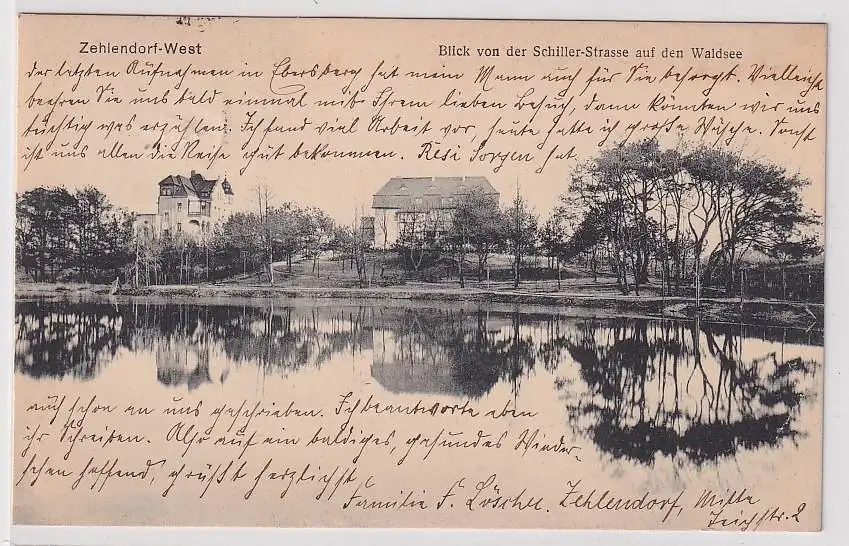 Zehlendorf-West
Blick von der Schiller-Strasse auf den Waldsee
der letzten Aufnahmen in Ebersberg hat mein Mann auch für Sie besorgt. Vielleicht
beehren Sie uns bald einmal mit Ihrem lieben Besuch, dann könnten wir uns
tüchtig was erzählen. Ich fand viel Arbeit vor, heute hatte ich große Wäsche. Sonst
ist uns allen die Reise gut bekommen. Resi Sorgen hat
auch schon an uns geschrieben. Ich beantworte eben
ihr Schreiben. Also auf ein baldiges, gesundes Wieder-
sehen hoffend, grüßt herzlichst
Familie F. Zehlendorf, Mitte
Teichstr. 2